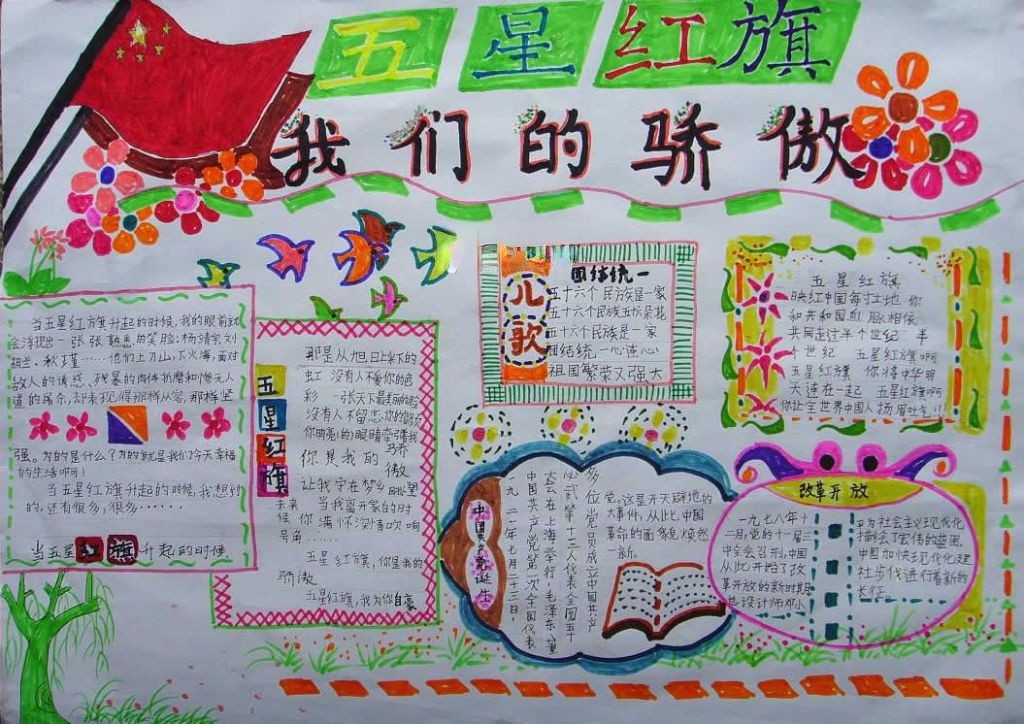 五星红旗
我们的骄傲
当五星红旗升起的时候,我的眼前就
会浮现出一张张熟悉的笑脸:杨靖宇刘
胡兰、秋瑾……他们上刀山,下火海,面对
敌人的诱惑,残暴的肉体折磨和惨无人
道的屠杀,却表现得那样从容,那样坚
强。为的是什么?为的就是我们今天幸福
的生活啊!
当五星红旗升起的时候,我想到
的,还有很多,很多……
当五星红旗升起的时候
五星红旗
那是从旭日上采下的
虹 没有人不爱你的色
彩 一张天下最美的脸
没有人不留恋你的容颜
你明亮的眼睛牵引着我
你是我的骄傲
让我守在梦乡眺望
未来 当我离开家的时
候 你满怀深情吹响
号角……
五星红旗,你是我的
骄傲
五星红旗,我为你自豪
儿歌
团结统一
五十六个民族是一家
五十六个民族五十六朵花
五十六个民族是一家
团结统一心连心
祖国繁荣又强大
五星红旗
映红中国每寸土地 你
和共和国血脉相依
共同走过半个世纪 半
个世纪 五星红旗啊
五星红旗 你将中华明
天连在一起 五星红旗啊
你让全世界中国人扬眉吐气!!
中国共产党诞生
一九二一年七月二十三日,
中国共产党第一次全国代表
大会在上海举行,毛泽东、董
必武等十三人代表全国五十
多位党员成立中国共产
党。这是开天辟地的
大事件,从此,中国
革命的面貌焕然
一新。
改革开放
一九七八年十
二月,党的十一届三
中全会召开,中国
从此开始了改
革开放的新时期
总设计师邓小
平为社会主义现代化
描绘了宏伟的蓝图,
中国加快现代化建
设步伐进行着新的
长征。